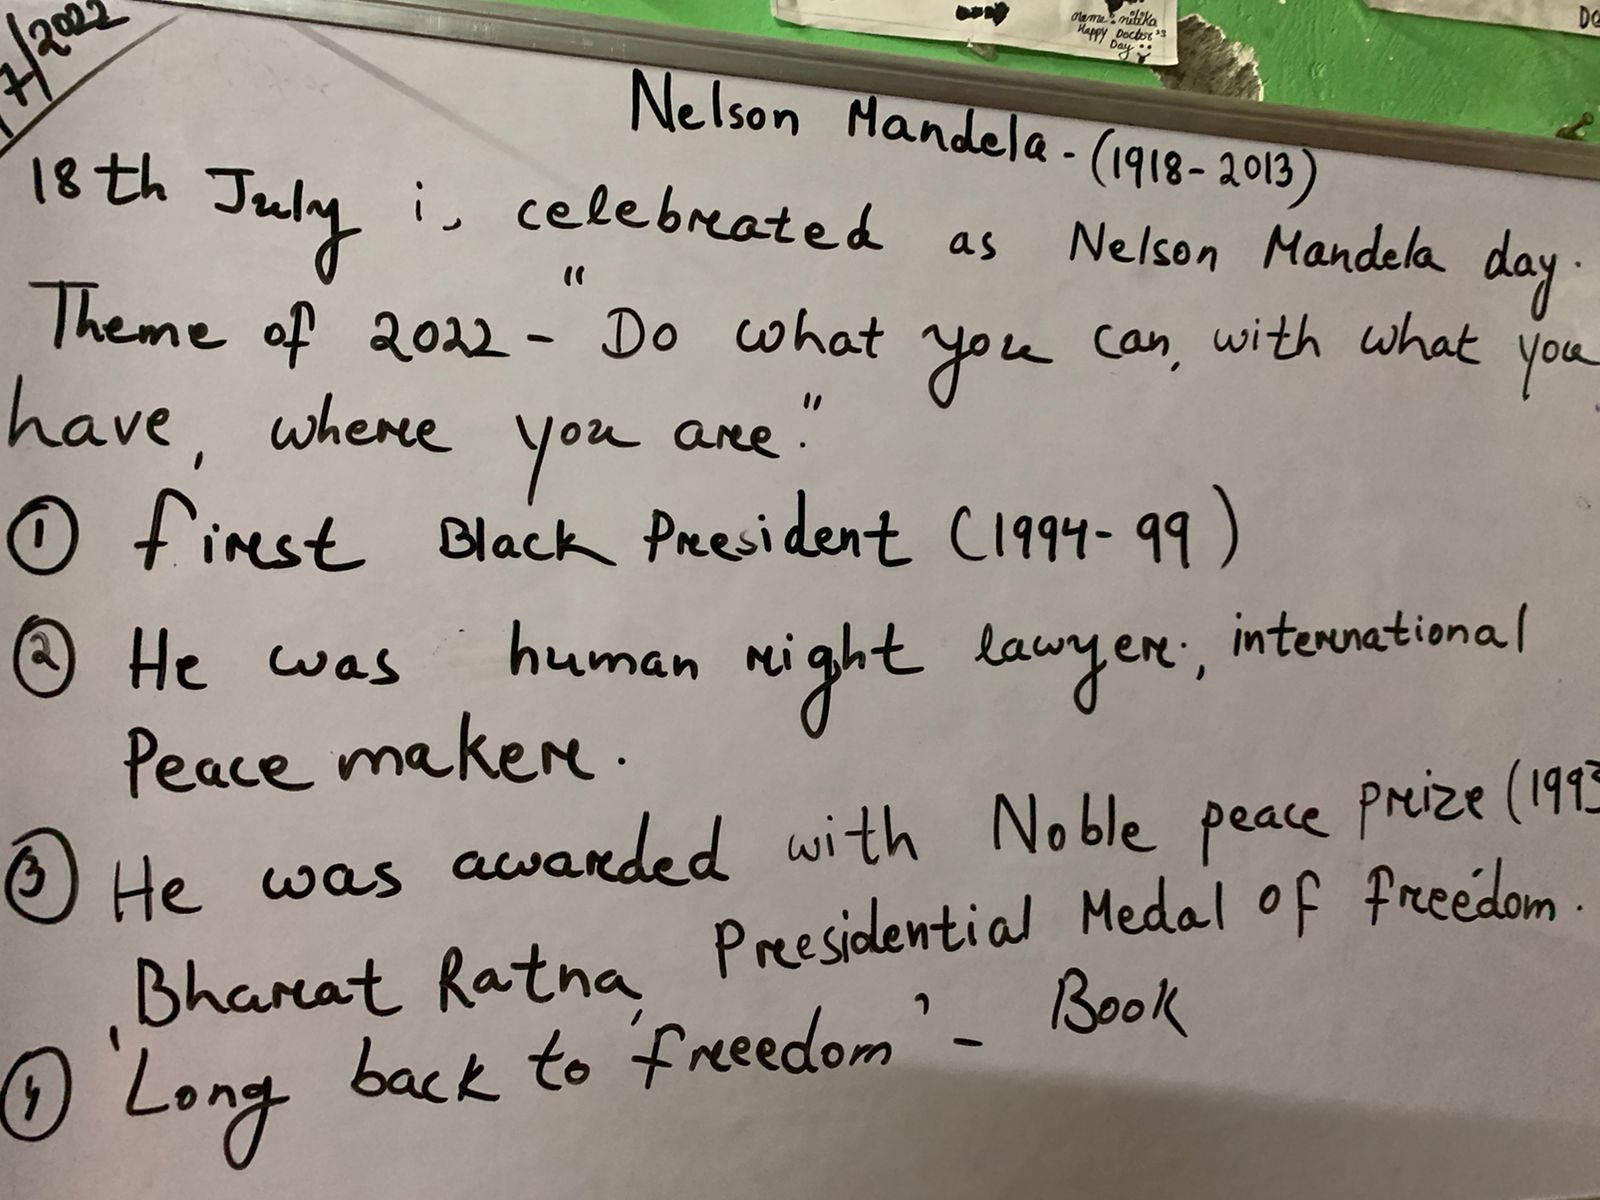 7/2022
name: nitika
Happy Doctor's
Day
Nelson Mandela - (1918-2013)
18th July is celebreated as Nelson Mandela day.
Theme of 2022 - "Do what you can, with what you
have, where you are."
① first Black President (1994-99)
② He was human right lawyer, international
Peace maker.
③ He was awarded with Noble peace prize (1993
, Bharat Ratna, Presidential Medal of freedom.
④ 'Long back to freedom' - Book